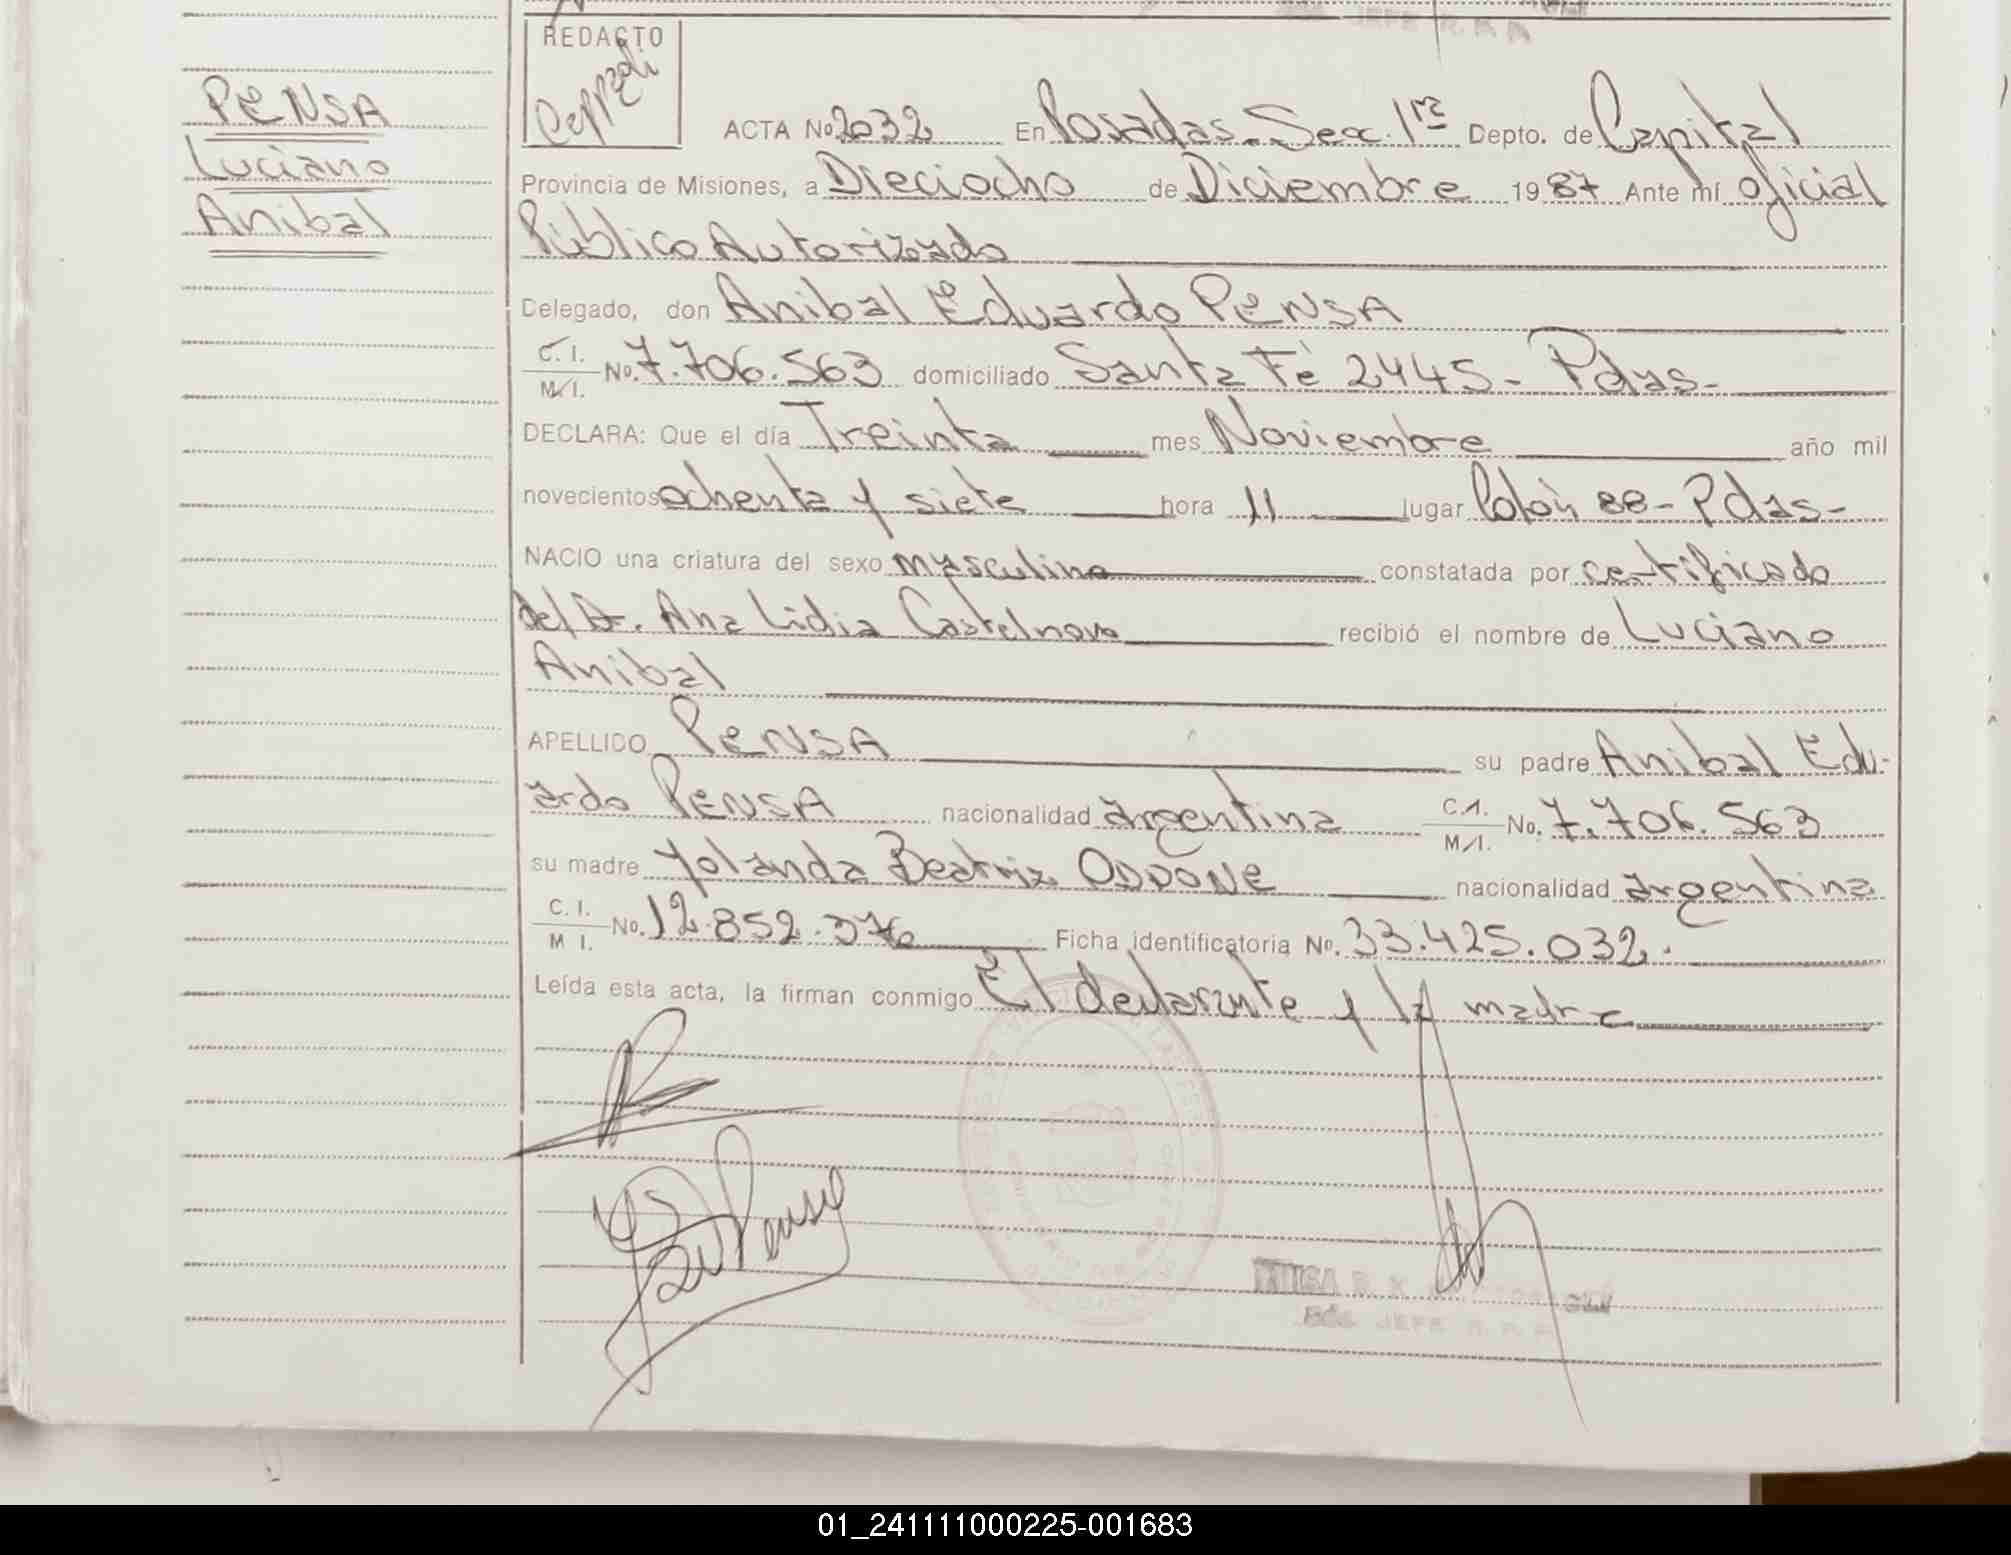 PENSA
Luciano
Anibal
REDACTO
ACTA No 2032 En Posadas - Secc. 1ra Depto. de Capital
Provincia de Misiones, a Dieciocho de Diciembre 1987 Ante mí oficial
Público Autorizado
Delegado, don Anibal Eduardo PENSA
C. I.
M/I. No. 7.706.563 domiciliado Santa Fé 2445 - Pdas-
DECLARA: Que el día Treinta mes Noviembre año mil
novecientos ochenta y siete hora 11 lugar Colón 88 - Pdas-
NACIO una criatura del sexo masculino constatada por certificado
del Dr. Ana Lidia Castelnovo recibió el nombre de Luciano
Anibal
APELLIDO PENSA su padre Anibal Edu-
ardo PENSA nacionalidad argentina C.I.
M/I. No. 7.706.563
su madre Yolanda Beatriz ODDONE nacionalidad argentina
C. I.
M I. No. 12.852.376 Ficha identificatoria No. 33.425.032.
Leída esta acta, la firman conmigo El declarante y la madre
JEFE R.
01_241111000225-001683